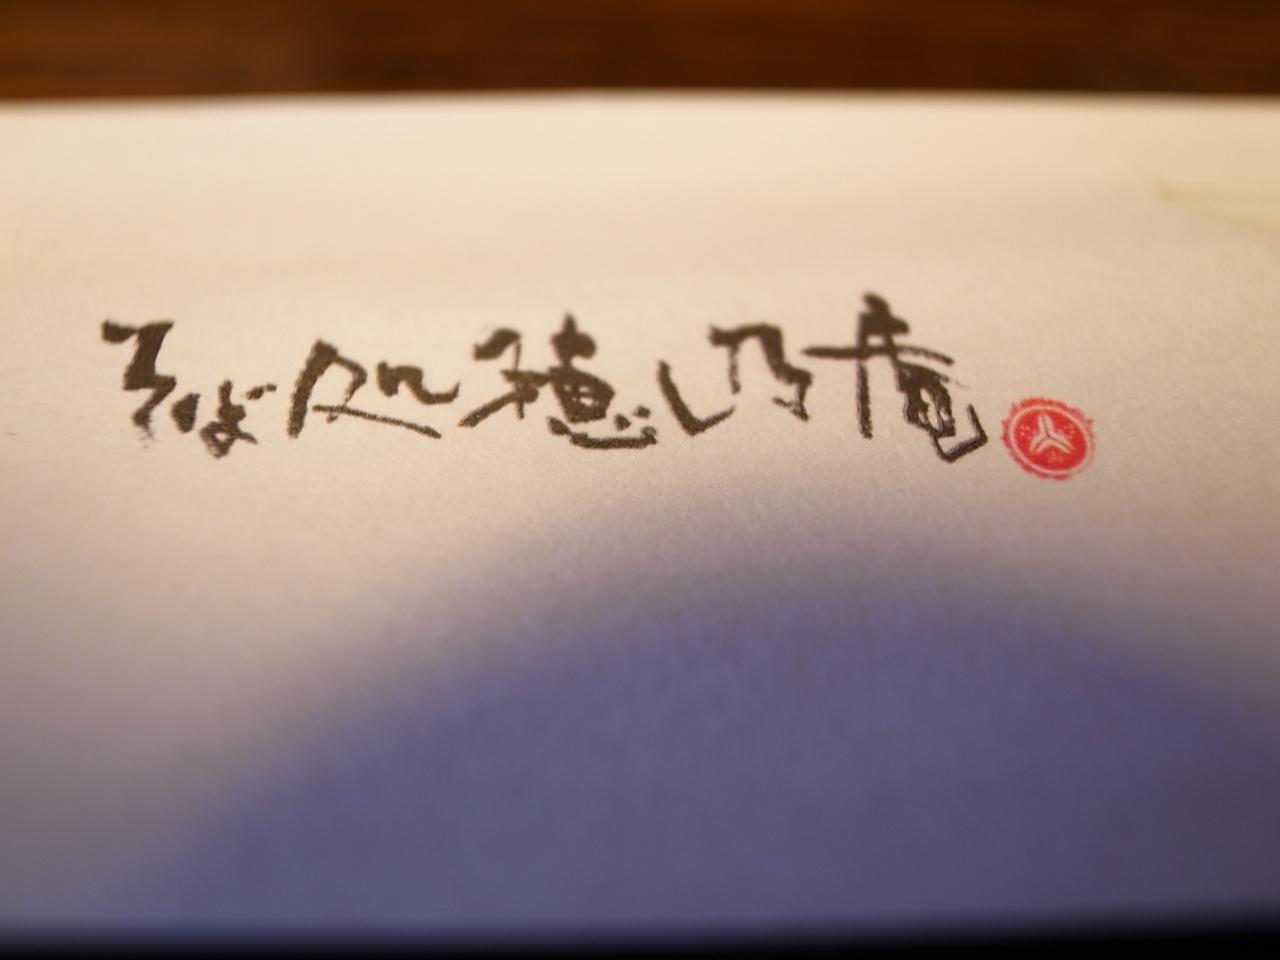 そば処穂し乃庵